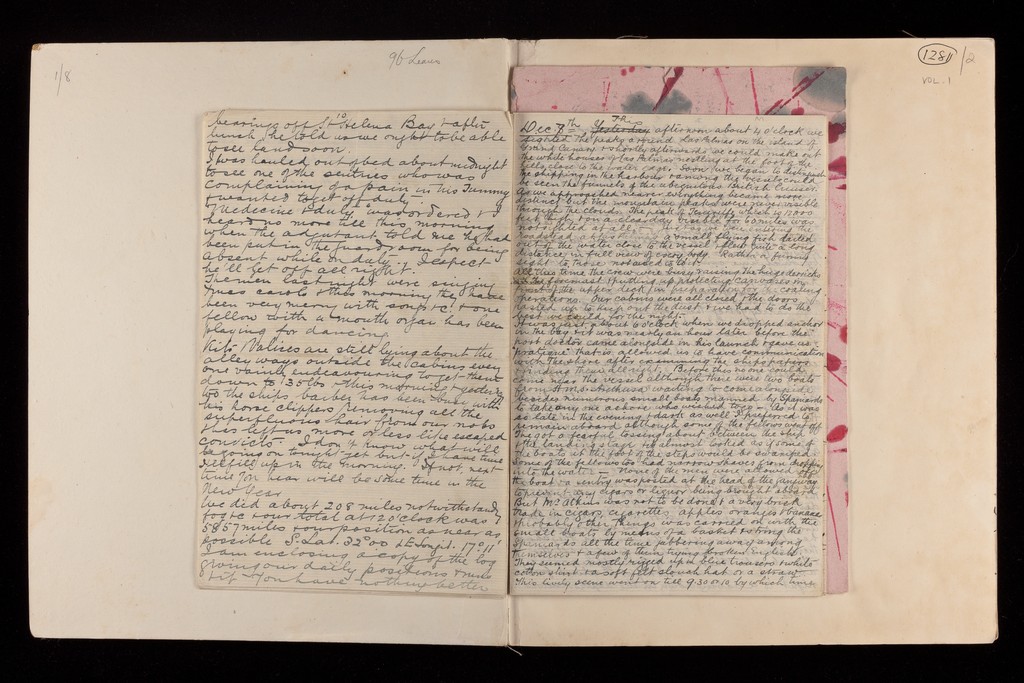 1/8
96 Leaves
1288/2
VOL. 1
bearings off St Helena Bay & after
lunch he told us we ought to be able
to see land soon.
I was hauled out of bed about midnight
to see one of the sentries who was
complaining of a pain in his Tummy
& wanted to get off duty.
"Medicine & duty" was ordered & I
heard no more till this morning
when the adjutant told me he had
been put in the guard room for being
absent while on duty. I expect
he'll get off all right.
The men last night were singing
Xmas carols & this morning they have
been very merry with songs &c. & one
fellow with a mouth organ has been
playing for dancing.
Kits & Valises are still lying about the
alley ways outside the cabins every
one vainly endeavouring to get them
down to 35 lbs & this morning & yesterday
too the ships barber has been busy with
his horse clippers removing all the
superfluous hair from our nobs
this left us more or less like escaped
convicts. I don't know what will
be going on tonight yet but if I have time
I will fill up in the morning. If not, next
time you hear will be some time in the
New Year
We did about 208 miles notwithstand'g
fog &c & our total at 12 o'clock was
5857 miles & our position as near as
possible S. Lat. 32°00 & E Longit. 17°11
I am enclosing a copy of the log
giving our daily positions & runs
& if you have nothing better
Dec 8th This afternoon about 4 o'clock we
sighted the peaky island Las Palmas on the island of
Grand Canary & shortly afterwards we could make out
the white houses of Las Palmas nestling at the foot of the
hills close to the water edge. Soon we began to distinguish
the shipping in the harbour & among the vessels could
be seen the funnels of the ubiquitous British Cruiser.
As we approached nearer everything became more
distinct but the mountain peaks were never visible
through the clouds. The peak of Teneriffe which is
feet high & on a clear day visible for 60 miles was
not sighted at all.
roadstead a small flying fish darted
out of the water close to the vessel & flew quite a long
distance in full view of every body. Rather a funny
sight to those not used to it.
All this time the crew were busy raising the huge derricks
on the foremast & putting up protecting canvases in
front of the upper deck in preparation for the coaling
operations. Our cabins were all closed & the doors
pasted up to keep out the dust & we had to do the
best we could for the night.
It was just about 6 o'clock when we dropped anchor
in the bay & it was nearly an hour later before the
port doctor came alongside in his launch & gave us
"pratique" that is allowed us to have communication
with the shore after examining the ships papers
& finding them all right. Before this no one could
come near the vessel although there were two boats
from H.M.S. waiting to come alongside
besides numerous small boats manned by Spaniards
to take any one ashore who wished to go. As it was
so late in the evening & dark as well I preferred to
remain aboard although some of the fellows went off
& got a fearful tossing about between the ship
& the landing stage. It almost looked as if some of
the boats at the foot of the steps would be swamped.
Some of the fellows too had narrow shaves from dropping
into the water. None of the men were allowed off
the boat & a sentry was posted at the head of the gangway
to prevent any cigars or liquor being brought aboard
But Mr Atkins was not to be done & a very brisk
trade in cigars, cigarettes apples oranges & bananas
& probably other things was carried on with the
small boats by means of a basket & string the
Spaniards all the time jabbering away among
themselves & a few of them trying broken English.
They seemed mostly rigged up in blue trousers & white
cotton shirt & a soft felt slouch hat or a straw.
This lively scene went on till 9.30 or 10 by which time